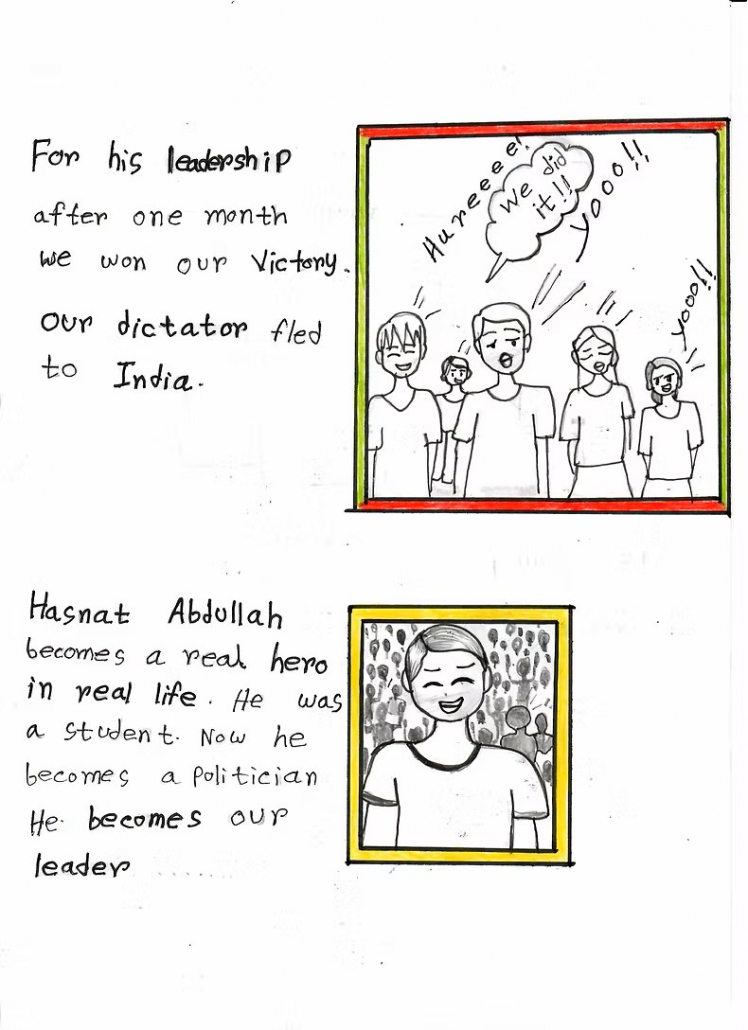 For his leadership
after one month
we won our Victory.
Our dictator fled
to India.
Hureeee!
We did
it!!
Yooo!!
Yooo!!
Hasnat Abdullah
becomes a real hero
in real life. He was
a student. Now he
becomes a politician
He becomes our
leader ......